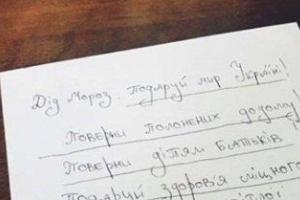 Дід Мороз подаруй мир Україні!
Поверни полонених додому
Поверни дітям батьків
Подаруй здоров'я міцного